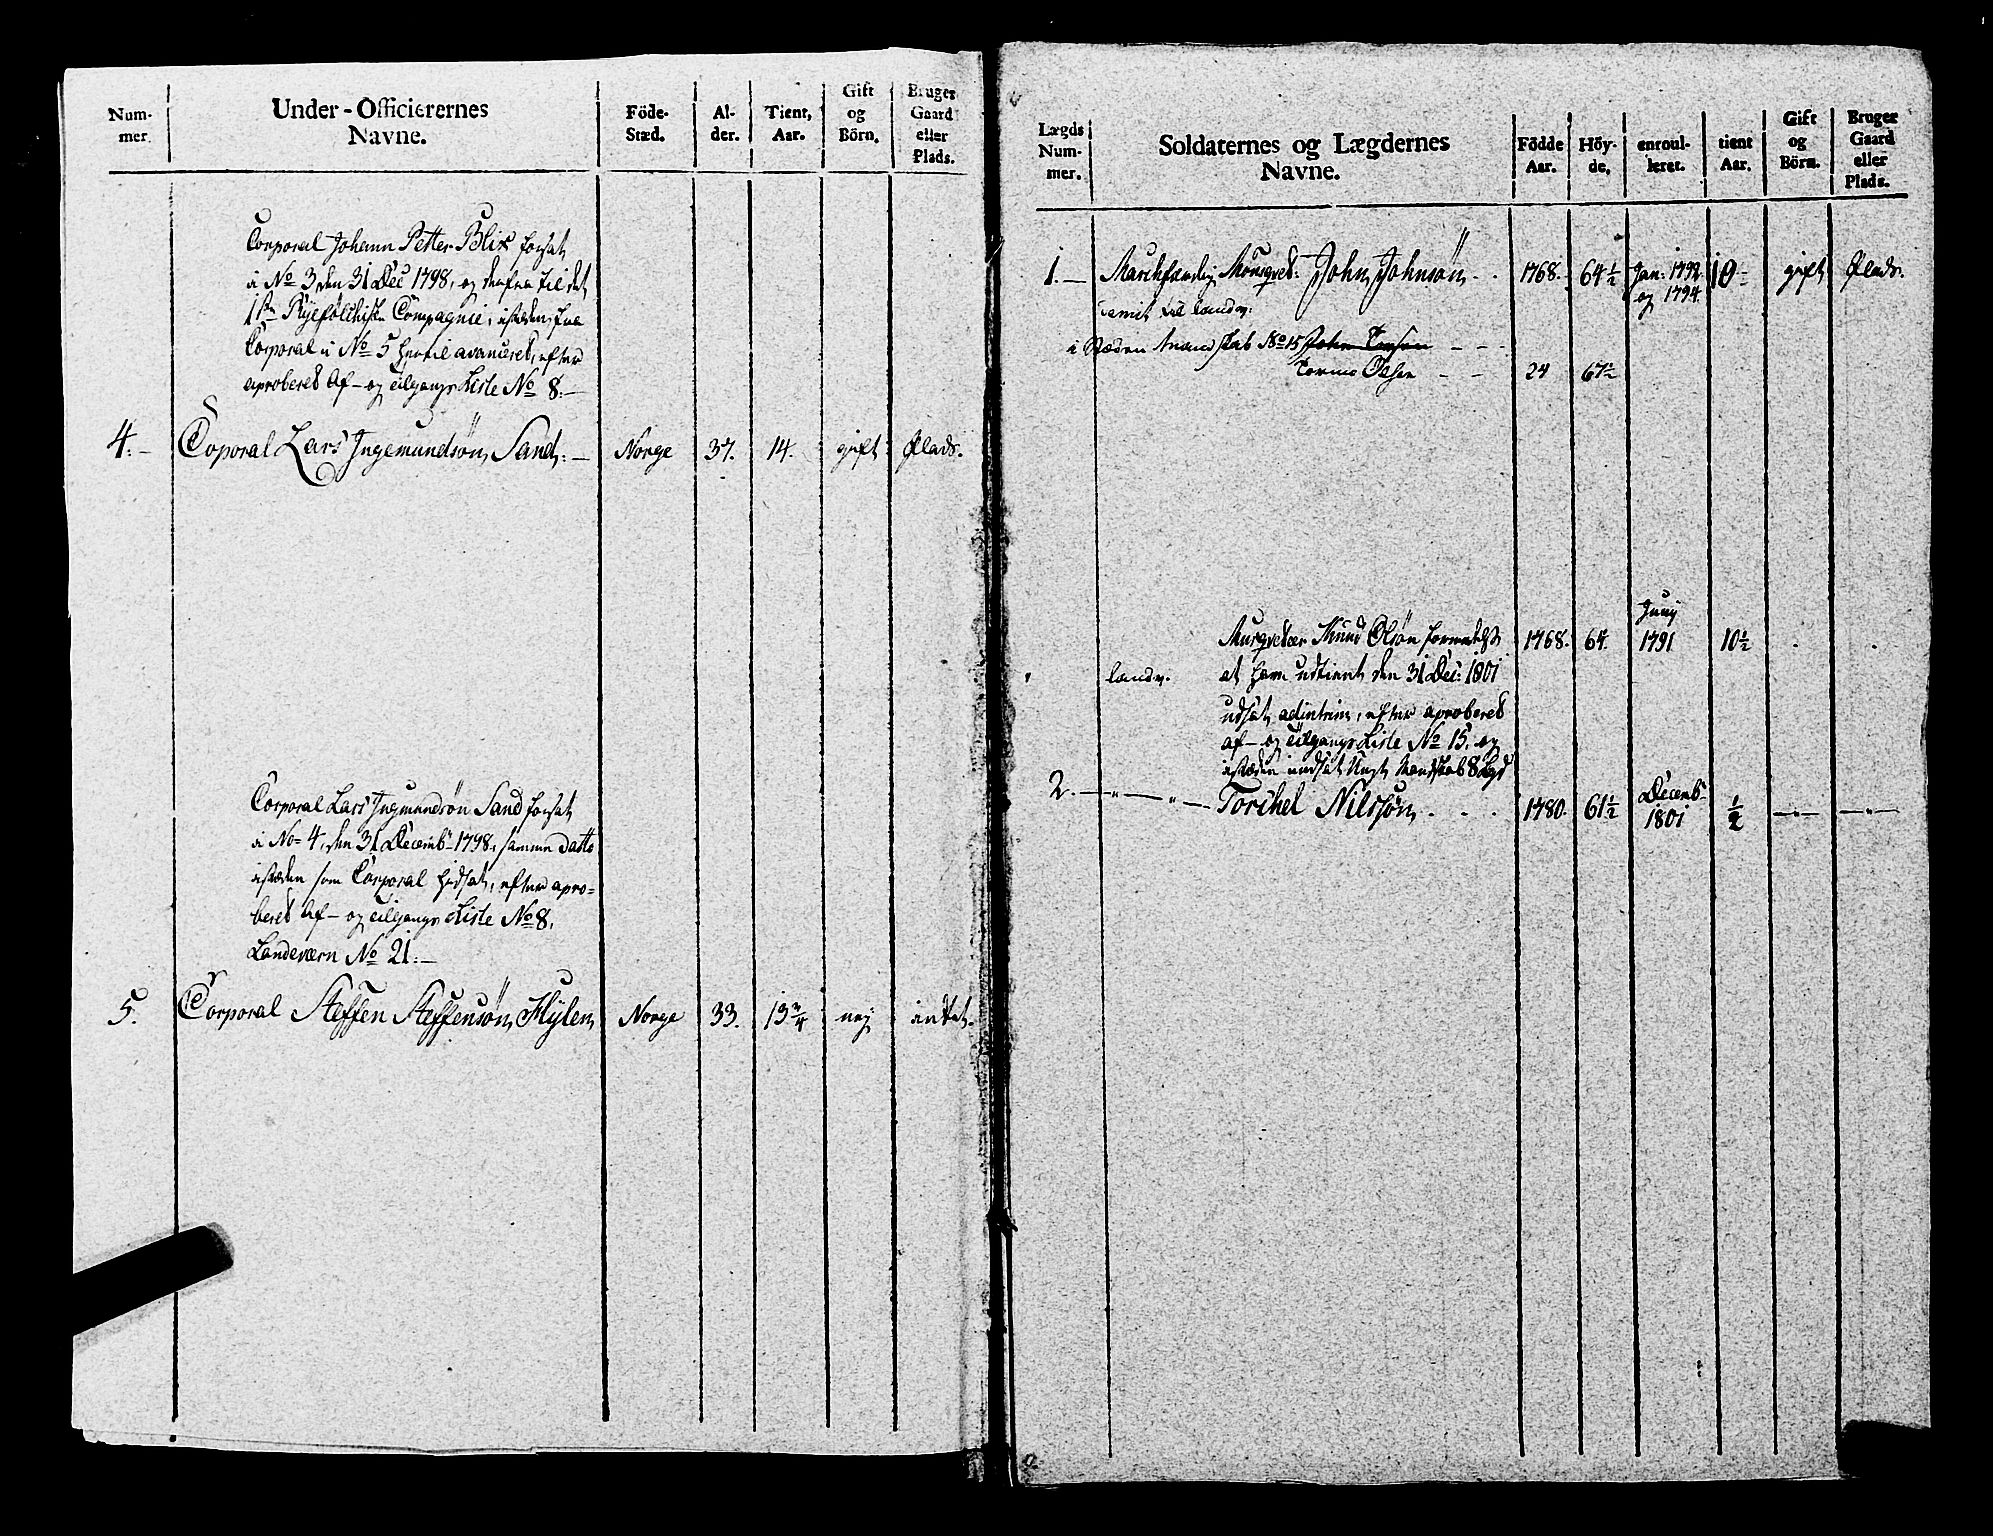 Num-
mer.
Under-Officierernes
Navne.
Föde-
Stæd.
Al-
der.
Tient,
Aar.
Gift
og
Börn.
Bruger
Gaard
eller
Plads.
Corporal Johann Petter Blix forsat
i No 3 den 31 Dec 1798, og derfra til det
1ste Ryefølchiske Compagnie, isteden fra
Corporal i No 5 hertil avanceret, efter
aproberet Af- og tilgangs Liste No 8.
4. Coporal Lars Ingemundsøn Sand. Norge 37. 14. gift Plads.
Corporal Lars Ingemundsøn Sand forsat
i No 4, den 31 Decemb 1798, samme Datto
isteden som Corporal hidsat, efter apro-
beret Af- og tilgangs Liste No 8,
Landeværn No 21.
5. Corporal Steffen Steffensøn Hylen Norge 33. 13 3/4 ney intet.
Lægds
Num-
mer.
Soldaternes og Lægdernes
Navne.
Födde
Aar.
Höy-
de.
enroul-
leret.
tient
Aar.
Gift
og
Börn.
Bruger
Gaard
eller
Plads.
1. Marchfærdig Mousqvet: John Johnsøn 1768. 64 1/2 Jan: 1792 10 gift Plads.
og 1794.
til landv:
i Steden No 15 John
Olsen 24 67 1/2
Juny
Musqveteer Knud Olsøn formedelst 1768. 64. 1791 10 1/2
landv. at have udtient den 31 Dec: 1801
udsat adintrim, efter aproberet
af- og tilgangs Liste No 15, og
isteden indsat Ungt Mandskab 8 Lgd
2. Torchel Nilssøn 1780. 61 1/2 Decemb 1801 1/2